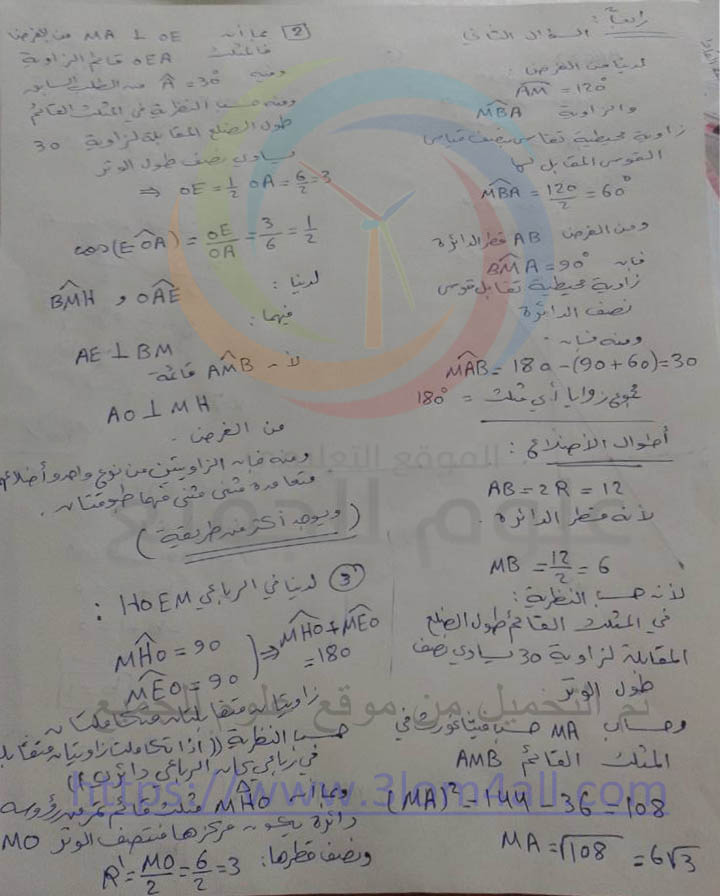 رابعاً:
السؤال الثاني
لدينا من الفرض:
AM = 120°
والزاوية MBA
زاوية محيطية تقاس بنصف قياس
القوس المقابل لها
MBA = 120/2 = 60°
ومن الفرض AB قطر الدائرة
فإن BMA = 90°
زاوية محيطية تقابل قوس
نصف الدائرة
ومنه فإن:
MAB = 180 - (90 + 60) = 30
مجموع زوايا أي مثلث = 180°
أطوال الأضلاع:
AB = 2R = 12
لأنه قطر الدائرة.
MB = 12/2 = 6
لأنه حسب النظرية:
في المثلث القائم طول الضلع
المقابلة لزاوية 30 تساوي نصف
طول الوتر
وحساب MA حسب فيثاغورث في
المثلث القائم AMB
(MA)² = 144 - 36 = 108
MA = √108 = 6√3
2 بما أن MA ⊥ OE من الفرض
فالمثلث OEA قائم الزاوية
وفيه A = 30° من الطلب السابق
ومنه حسب النظرية في المثلث القائم
طول الضلع المقابلة لزاوية 30
يساوي نصف طول الوتر
⇒ OE = 1/2 OA = 6/2 = 3
cos(EOA) = OE/OA = 3/6 = 1/2
لدينا: OAE و BMH
فيهما:
AE ⊥ BM
لأن AMB قائمة
AO ⊥ MH
من الفرض.
ومنه فإن الزاويتين من نوع واحد وأضلاع
متعامدة مثنى مثنى فهما طبوقتان.
(ويوجد أكثر من طريقة)
3 لدينا في الرباعي HOEM:
MHO = 90
MEO = 90
⇒ MHO + MEO = 180
زاويتان متقابلتان متكاملتان
حسب النظرية ((إذا تكاملت زاويتان متقابل
في رباعي كان الرباعي دائري))
وبما أن MHO مثلث قائم تمر من رؤوسه
دائرة يكون مركزها منتصف الوتر MO
ونصف قطرها: R' = MO/2 = 6/2 = 3
الموقع التعليمي
علوم للجميع
تم التحميل من موقع علوم للجميع
https://www.3lom4all.com